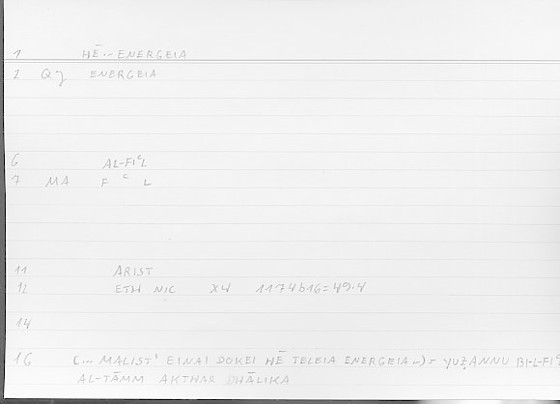 1 HĒ - ENERGEIA
2 Qy ENERGEIA
6 AL-FIᶜL
7 MA F ᶜ L
11 ARIST
12 ETH NIC X4 1174b16=49.4
14
16 (... MALIST' EINAI DOKEI HĒ TELEIA ENERGEIA -) = YUẒANNU BI-L-FIᶜ
AL-TĀMM AKTHAR DHĀLIKA